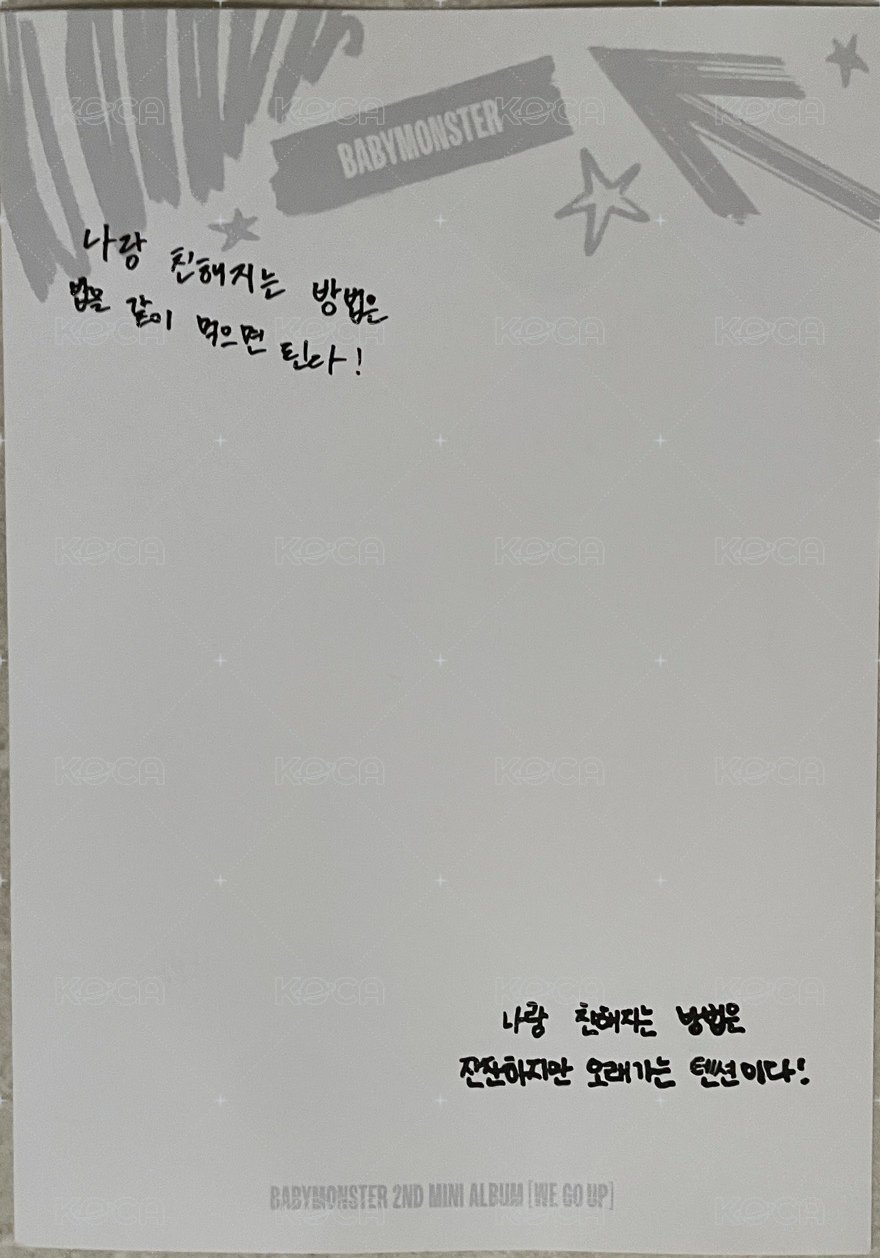 BABYMONSTER
나랑 친해지는 방법은
밥을 같이 먹으면 된다!
나랑 친해지는 방법은
잔잔하지만 오래가는 텐션이다!
BABYMONSTER 2ND MINI ALBUM [WE GO UP]
KOCA